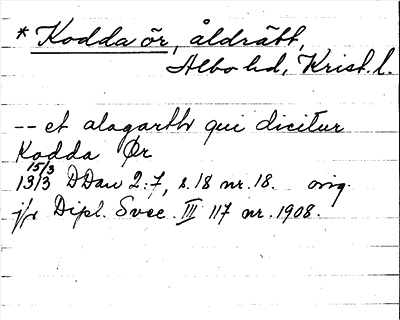 * Kodda ör, åldrätt,
Albo hd, Krist. l.
-- et alagarth qui dicitur
Kodda Ør
15/3
1313 DDan 2:7, s. 18 nr. 18. orig.
jfr Dipl. Svec. III 117 nr. 1908.